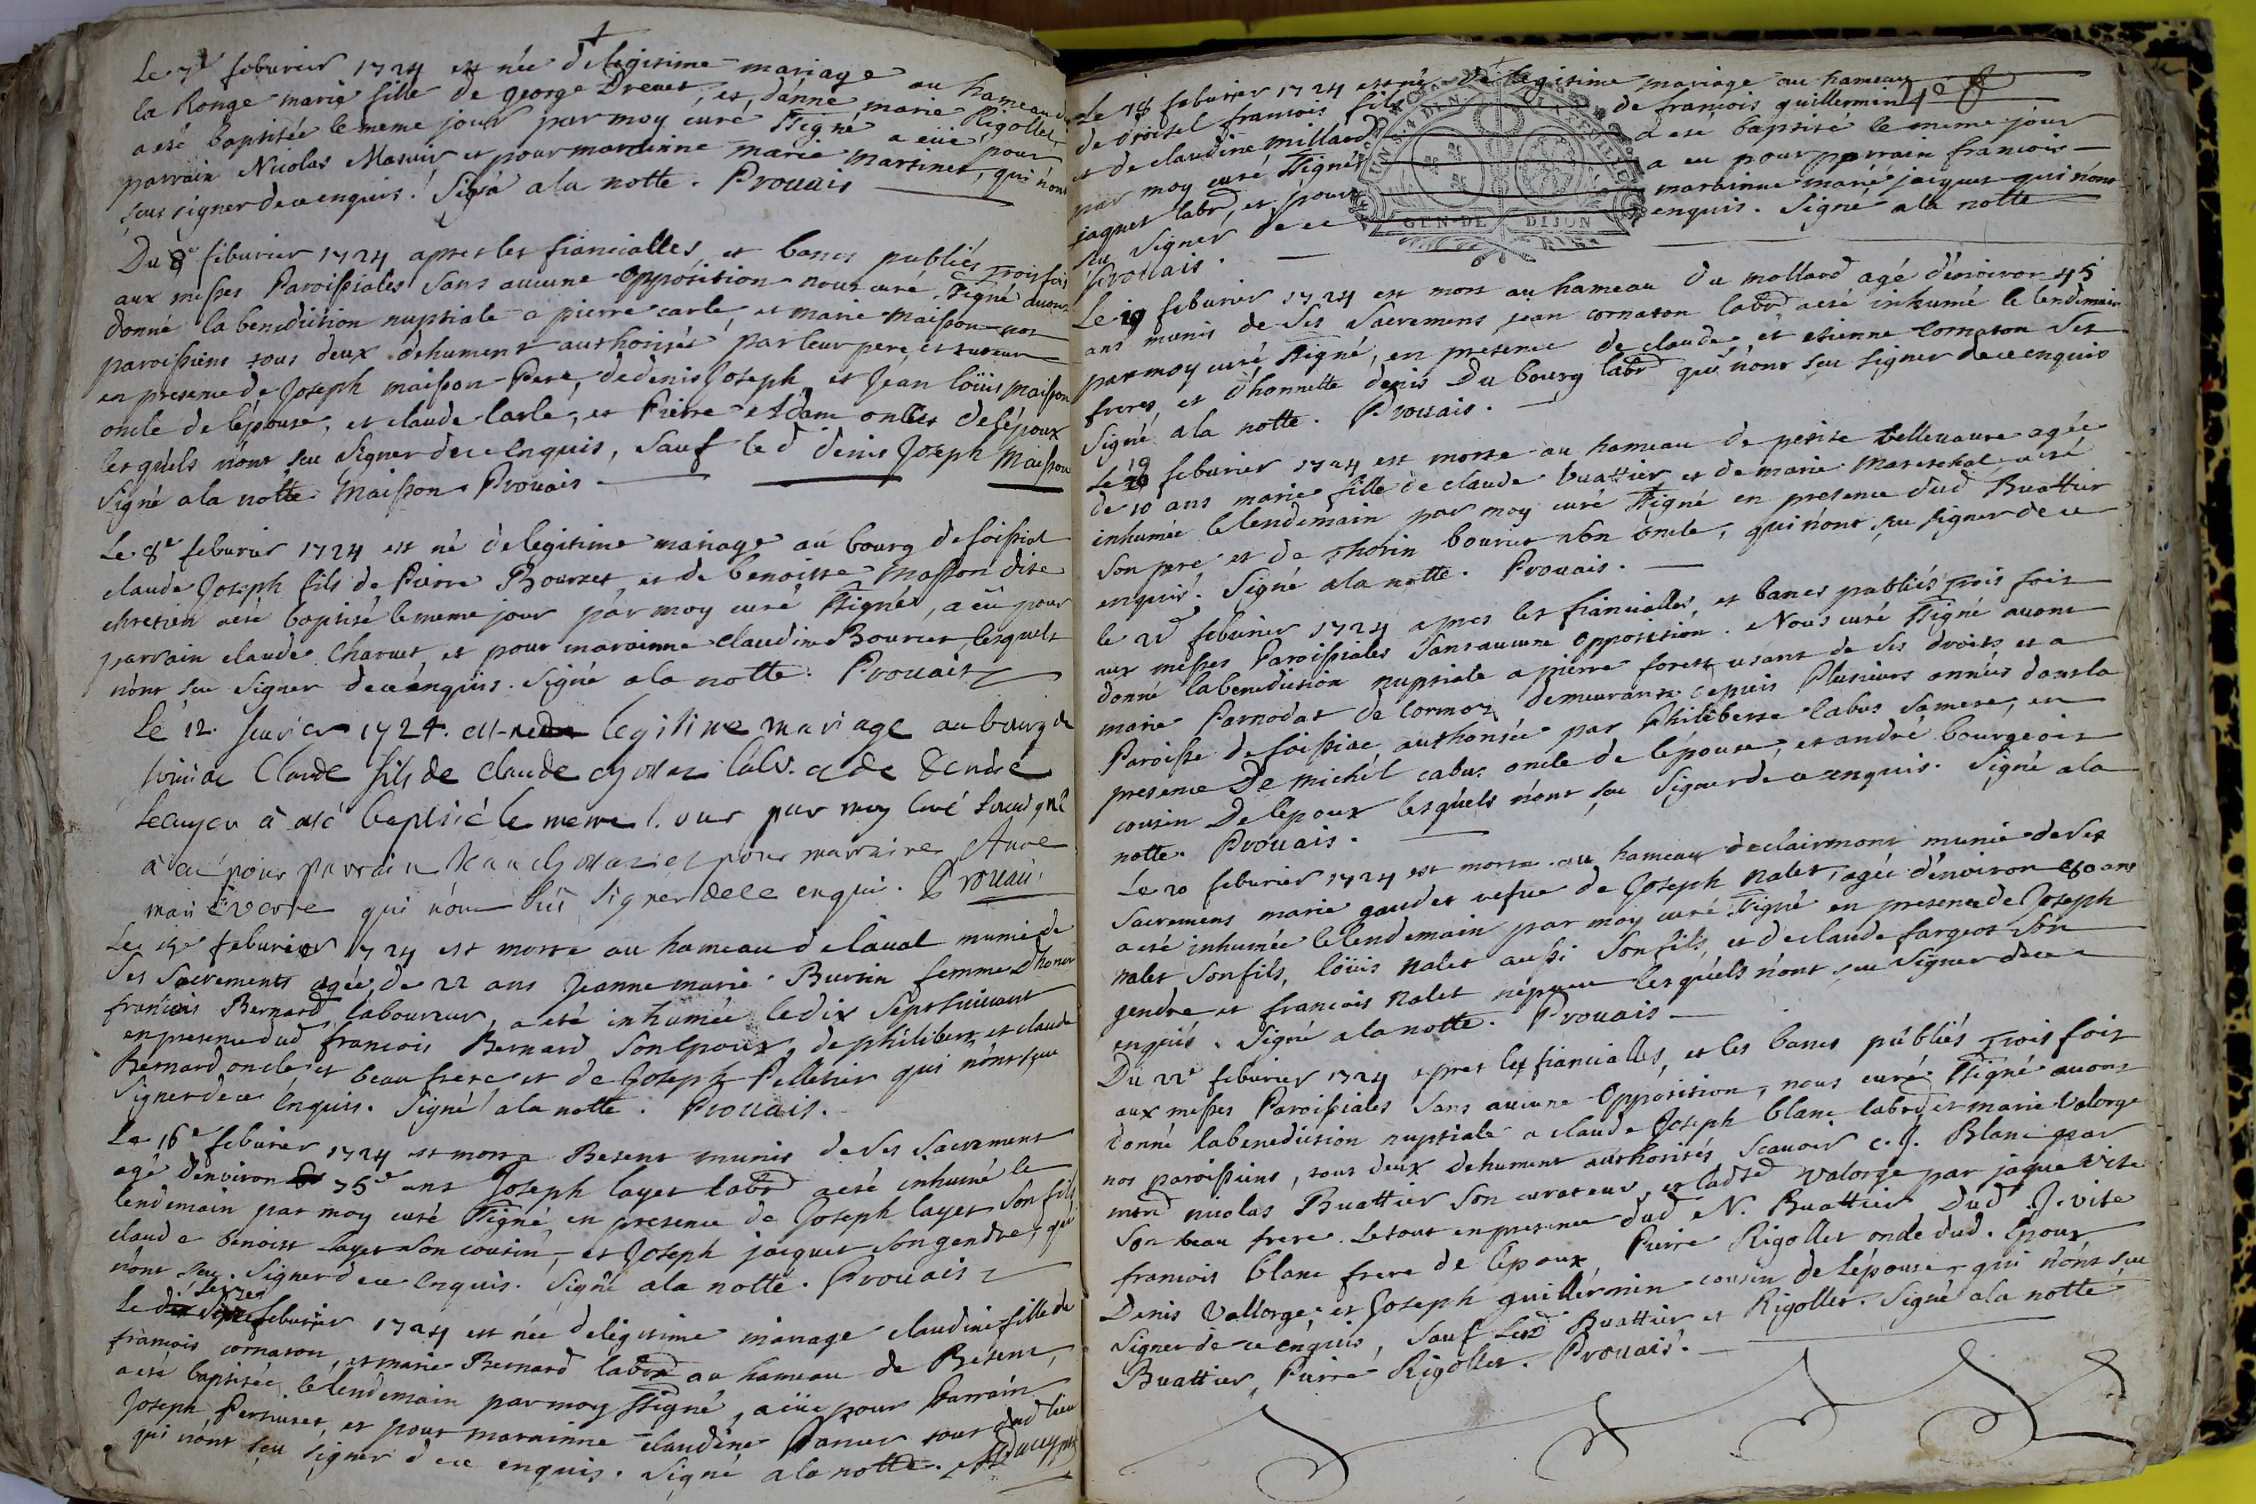 Le 7e feburier 1724 est née de legitime mariage au hameau de
la Ronge marie fille de george Drevet, et danne marie Rigollet,
a esté baptisée le meme jour par moy curé ssigné a eüe pour
parrain Nicolas et pour marainne marie martinet, qui n'ont
sceu signer de ce enquis. Signé a la notte. Provais
Du 8e feburier 1724 apres les fiancialles, et bancs publiés trois fois
aux messes Paroissiales sans aucune opposition nous curé ssigné avons
donné la benediction nuptiale a pierre carle, et marie maisson nos
paroissiens tous deux dehument authorisés par leur pere, et tuteur
en presence de Joseph maisson Pere, de denis Joseph, et Jean loüis maisson
oncle de lépouse, et claude Carle, et Pierre Adam oncles de lépoux
lesquels n'ont sceu signer de ce enquis, sauf le d denis Joseph Maisson
Signé a la notte. Maisson. Provais
Le 8e feburier 1724 est né de legitime mariage au bourg de foissiat
claude Joseph fils de Pierre Bourcet et de benoitte Masson dite
chretien a esté baptisé le meme jour par moy curé ssigné, a eü pour
parrain claude Charvet, et pour marainne claudine Bourcet lesquels
n'ont sceu signer de ce enquis. Signé a la notte. Provais
Le 12. fevrier 1724. est né de legitime mariage au bourg de
foissiac Claude fils de claude labr. et de
Lecuyer à esté baptisé le meme jour par moy curé soussigné
à eü pour parrain et pour marraine Anne
mari qui n'ont sceü signer de ce enqui. Provais
Le 15e feburier 1724 est morte au hameau de laval munie de
ses sacrements agée de 22 ans Jeanne marie Burtin femme d'honor
francois Bernard laboureur, a eté inhumée le dix sept suivant
en presence dud francois Bernard son epoux, de philibert, et claude
Bernard oncle et beau frere et de Joseph Pelletier qui n'ont sceu
signer de ce enquis. Signé a la notte. Provais.
Le 16e feburier 1724 est mort a Besent munis de ses sacrement
agé denviron 75e ans Joseph layet labrd a esté inhumé le
lendemain par moy curé ssigné, en presence de Joseph layet son fils
claude benoist layet son cousin, et Joseph jacquet son gendre, qui
n'ont sceu signer de ce enquis. Signé a la notte. Provais
Le seize feburier 1724 est née de legitime mariage claudine fille de
francois cornaton, et marie Bernard labrd au hameau de Besent,
a esté baptisée le lendemain par moy ssigné, a eüe pour Parrain
Joseph Perruset, et pour marainne claudine tous dud lieu
qui n'ont sceu signer de ce enquis. Signé a la notte.
Le 18 feburier 1724 est né de legitime mariage au hameau
de Croisel francois fils de francois guillermin
et de claudine millard a esté baptisé le meme jour
par moy curé ssigné a eu pour parrain francois
jaquet labrd, et pour marainne marie jacquet qui n'ont
sceu signer de ce enquis. Signé a la notte
Provais.
GEN. DE DIJON
Le 19 feburier 1724 est mort au hameau du mollard agé d'environ 45
ans munis de ses sacremens jean cornaton labrd a esté inhumé le lendemain
par moy curé ssigné, en presence de claude et etienne Cornaton ses
freres, et d'honnette denis Du bourg labrd qui n'ont sceu signer de ce enquis
Signé a la notte. Provais.
Le 19 feburier 1724 est morte au hameau de petite bellevavre agée
de 10 ans marie fille de claude buattier, et de marie mareschal a esté
inhumée le lendemain par moy curé ssigné en presence dud Buattier
son pere et de Thorin bourcet son oncle, qui n'ont sceu signer de ce
enquis. Signé a la notte. Provais.
le 21 feburier 1724 apres les fiancialles, et bancs publiés trois fois
aux messes Paroissiales sans aucune opposition. Nous curé ssigné avons
donné la benediction nuptiale a pierre forest usant de ses droits et a
marie Parnodat de Cormoz demeurante depuis Plusieurs années dans la
Paroisse de foissiac authorisée par Philiberte Cabus sa mere, en
presence De michel cabus oncle de lépouse, et andré bourgeois
cousin De lépoux lesquels n'ont sceu signer de ce enquis. Signé a la
notte. Provais.
Le 20 feburier 1724 est morte au hameau de clairmont munie de ses
sacremens marie gaudet vefve de Joseph nalet, agée d'environ 80 ans
a esté inhumée le lendemain par moy curé ssigné en presence de Joseph
nalet son fils, loüis nalet aussi son fils, et de claude fargeot son
gendre et francois nalet népveu lesquels n'ont sceu signer de ce
enquis. Signé a la notte. Provais
Du 22e feburier 1724 apres les fiancialles, et les bancs publiés trois fois
aux messes Paroissiales sans aucune opposition, nous curé ssigné avons
donné la benediction nuptiale a claude Joseph blanc labrd et marie Valorge
nos paroissiens, tous deux dehument authorisés scavoir c. J. Blanc par
nicolas Buattier son curateur, et ladte Valorge par jaque vite
son beau frere. Le tout en presence dud N. Buattier Dud J. vite
francois blanc frere de lépoux Pierre Rigollet oncle dud. Epoux
Denis Vallorge, et Joseph guillermin cousin de lépouse, qui n'ont sceu
signer de ce enquis, sauf Lesd Buattier et Rigollet. Signé a la notte
Buattier, Pierre Rigollet. Provais.